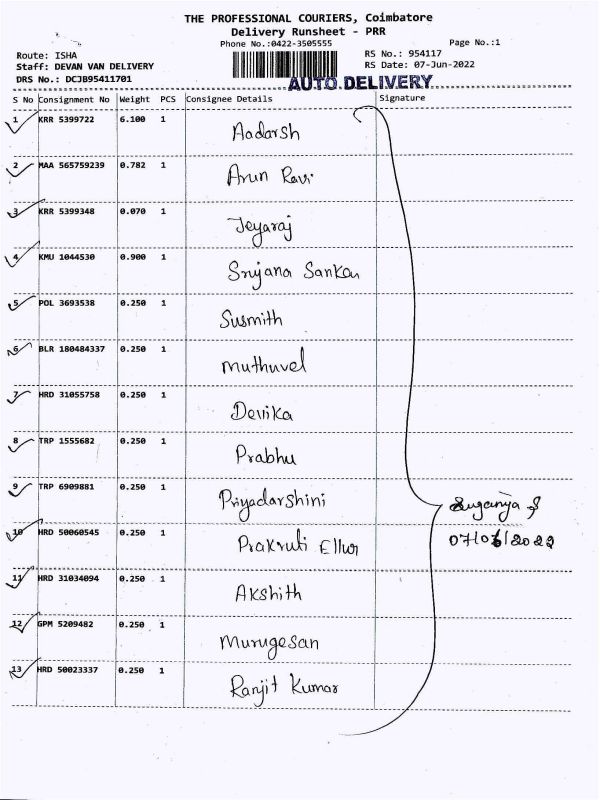 THE PROFESSIONAL COURIERS, Coimbatore
Delivery Runsheet - PRR
Phone No.:0422-3505555 Page No.:1
Route: ISHA RS No.: 954117
Staff: DEVAN VAN DELIVERY RS Date: 07-Jun-2022
DRS No.: DCJB95411701 AUTO DELIVERY
S No Consignment No Weight PCS Consignee Details Signature
1 KRR 5399722 6.100 1 Aadarsh
2 MAA 565759239 0.782 1 Arun Ravi
3 KRR 5399348 0.070 1 Jeyaraj
4 KMU 1044530 0.900 1 Srijana Sankar
5 POL 3693538 0.250 1 Susmith
6 BLR 180484337 0.250 1 Muthuvel
7 HRD 31055758 0.250 1 Devika
8 TRP 1555682 0.250 1 Prabhu
9 TRP 6909881 0.250 1 Priyadarshini
Suganya S
10 HRD 50060545 0.250 1 Prakruti Ellur 07/06/2022
11 HRD 31034094 0.250 1 Akshith
12 GPM 5209482 0.250 1 Murugesan
13 HRD 50023337 0.250 1 Ranjit Kumar